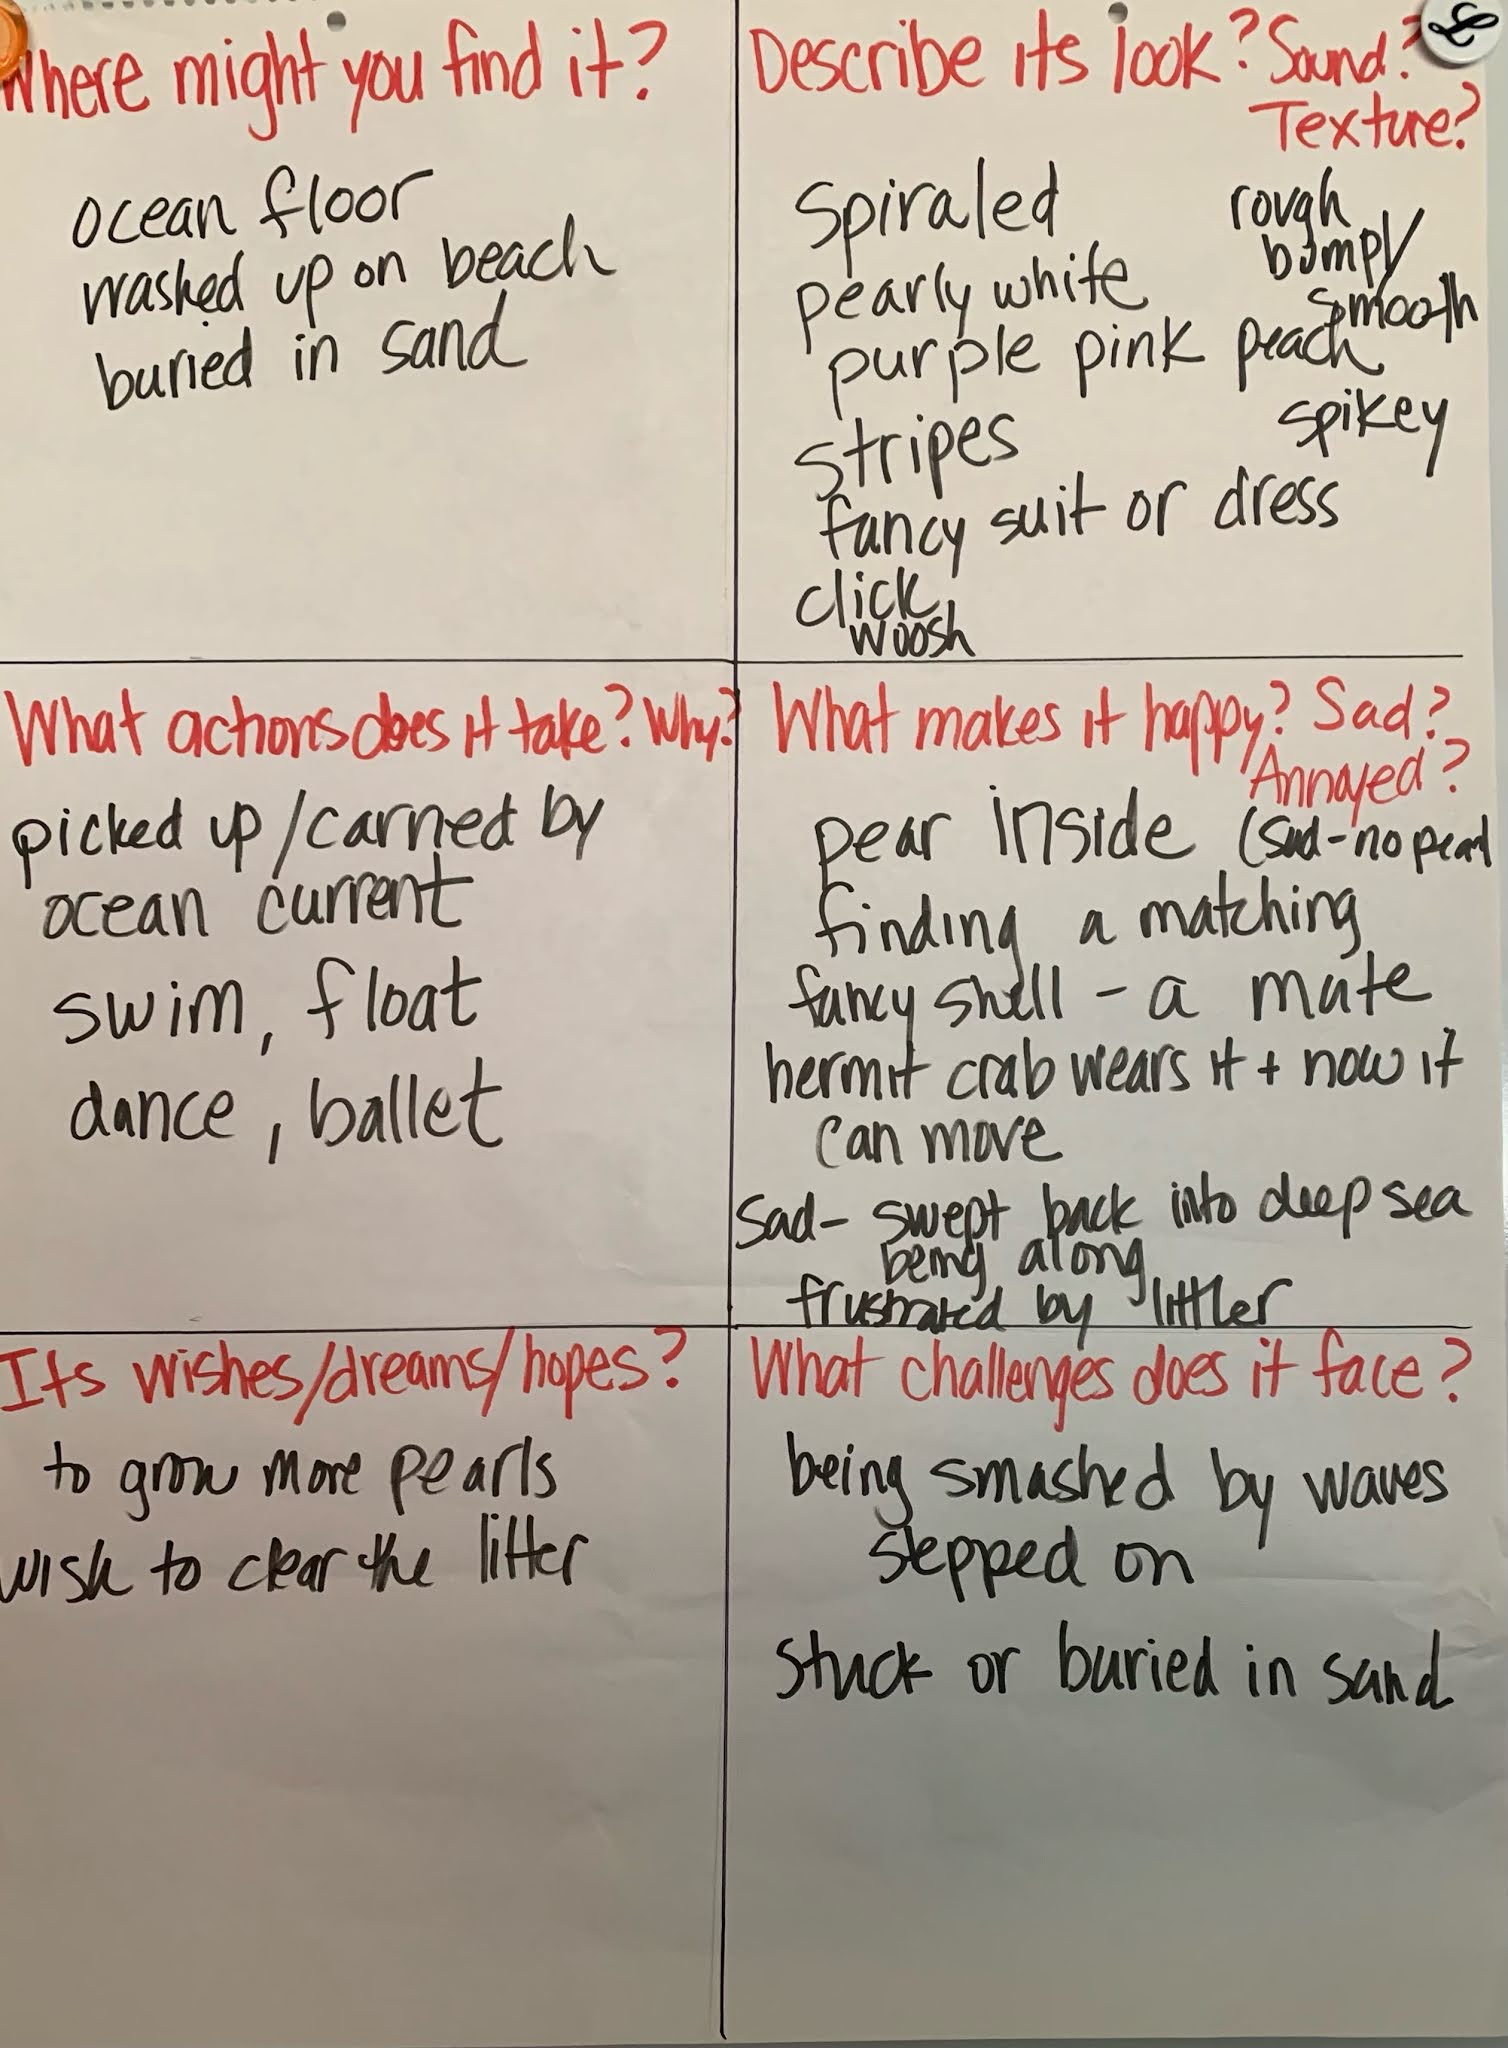 Where might you find it?
ocean floor
washed up on beach
buried in sand
Describe its look? Sound?
Texture?
Spiraled
rough
bumpy
smooth
pearly white
purple pink peach
spikey
stripes
fancy suit or dress
click
woosh
What actions does it take? Why?
picked up/carried by
ocean current
swim, float
dance, ballet
What makes it happy? Sad?
Annoyed?
pear inside (sad-no pearl
finding a matching
fancy shell - a mate
hermit crab wears it + now it
can move
Sad- swept back into deep sea
being along
frustrated by littler
Its wishes/dreams/hopes?
to grow more pearls
wish to clear the litter
What challenges does it face?
being smashed by waves
stepped on
stuck or buried in sand